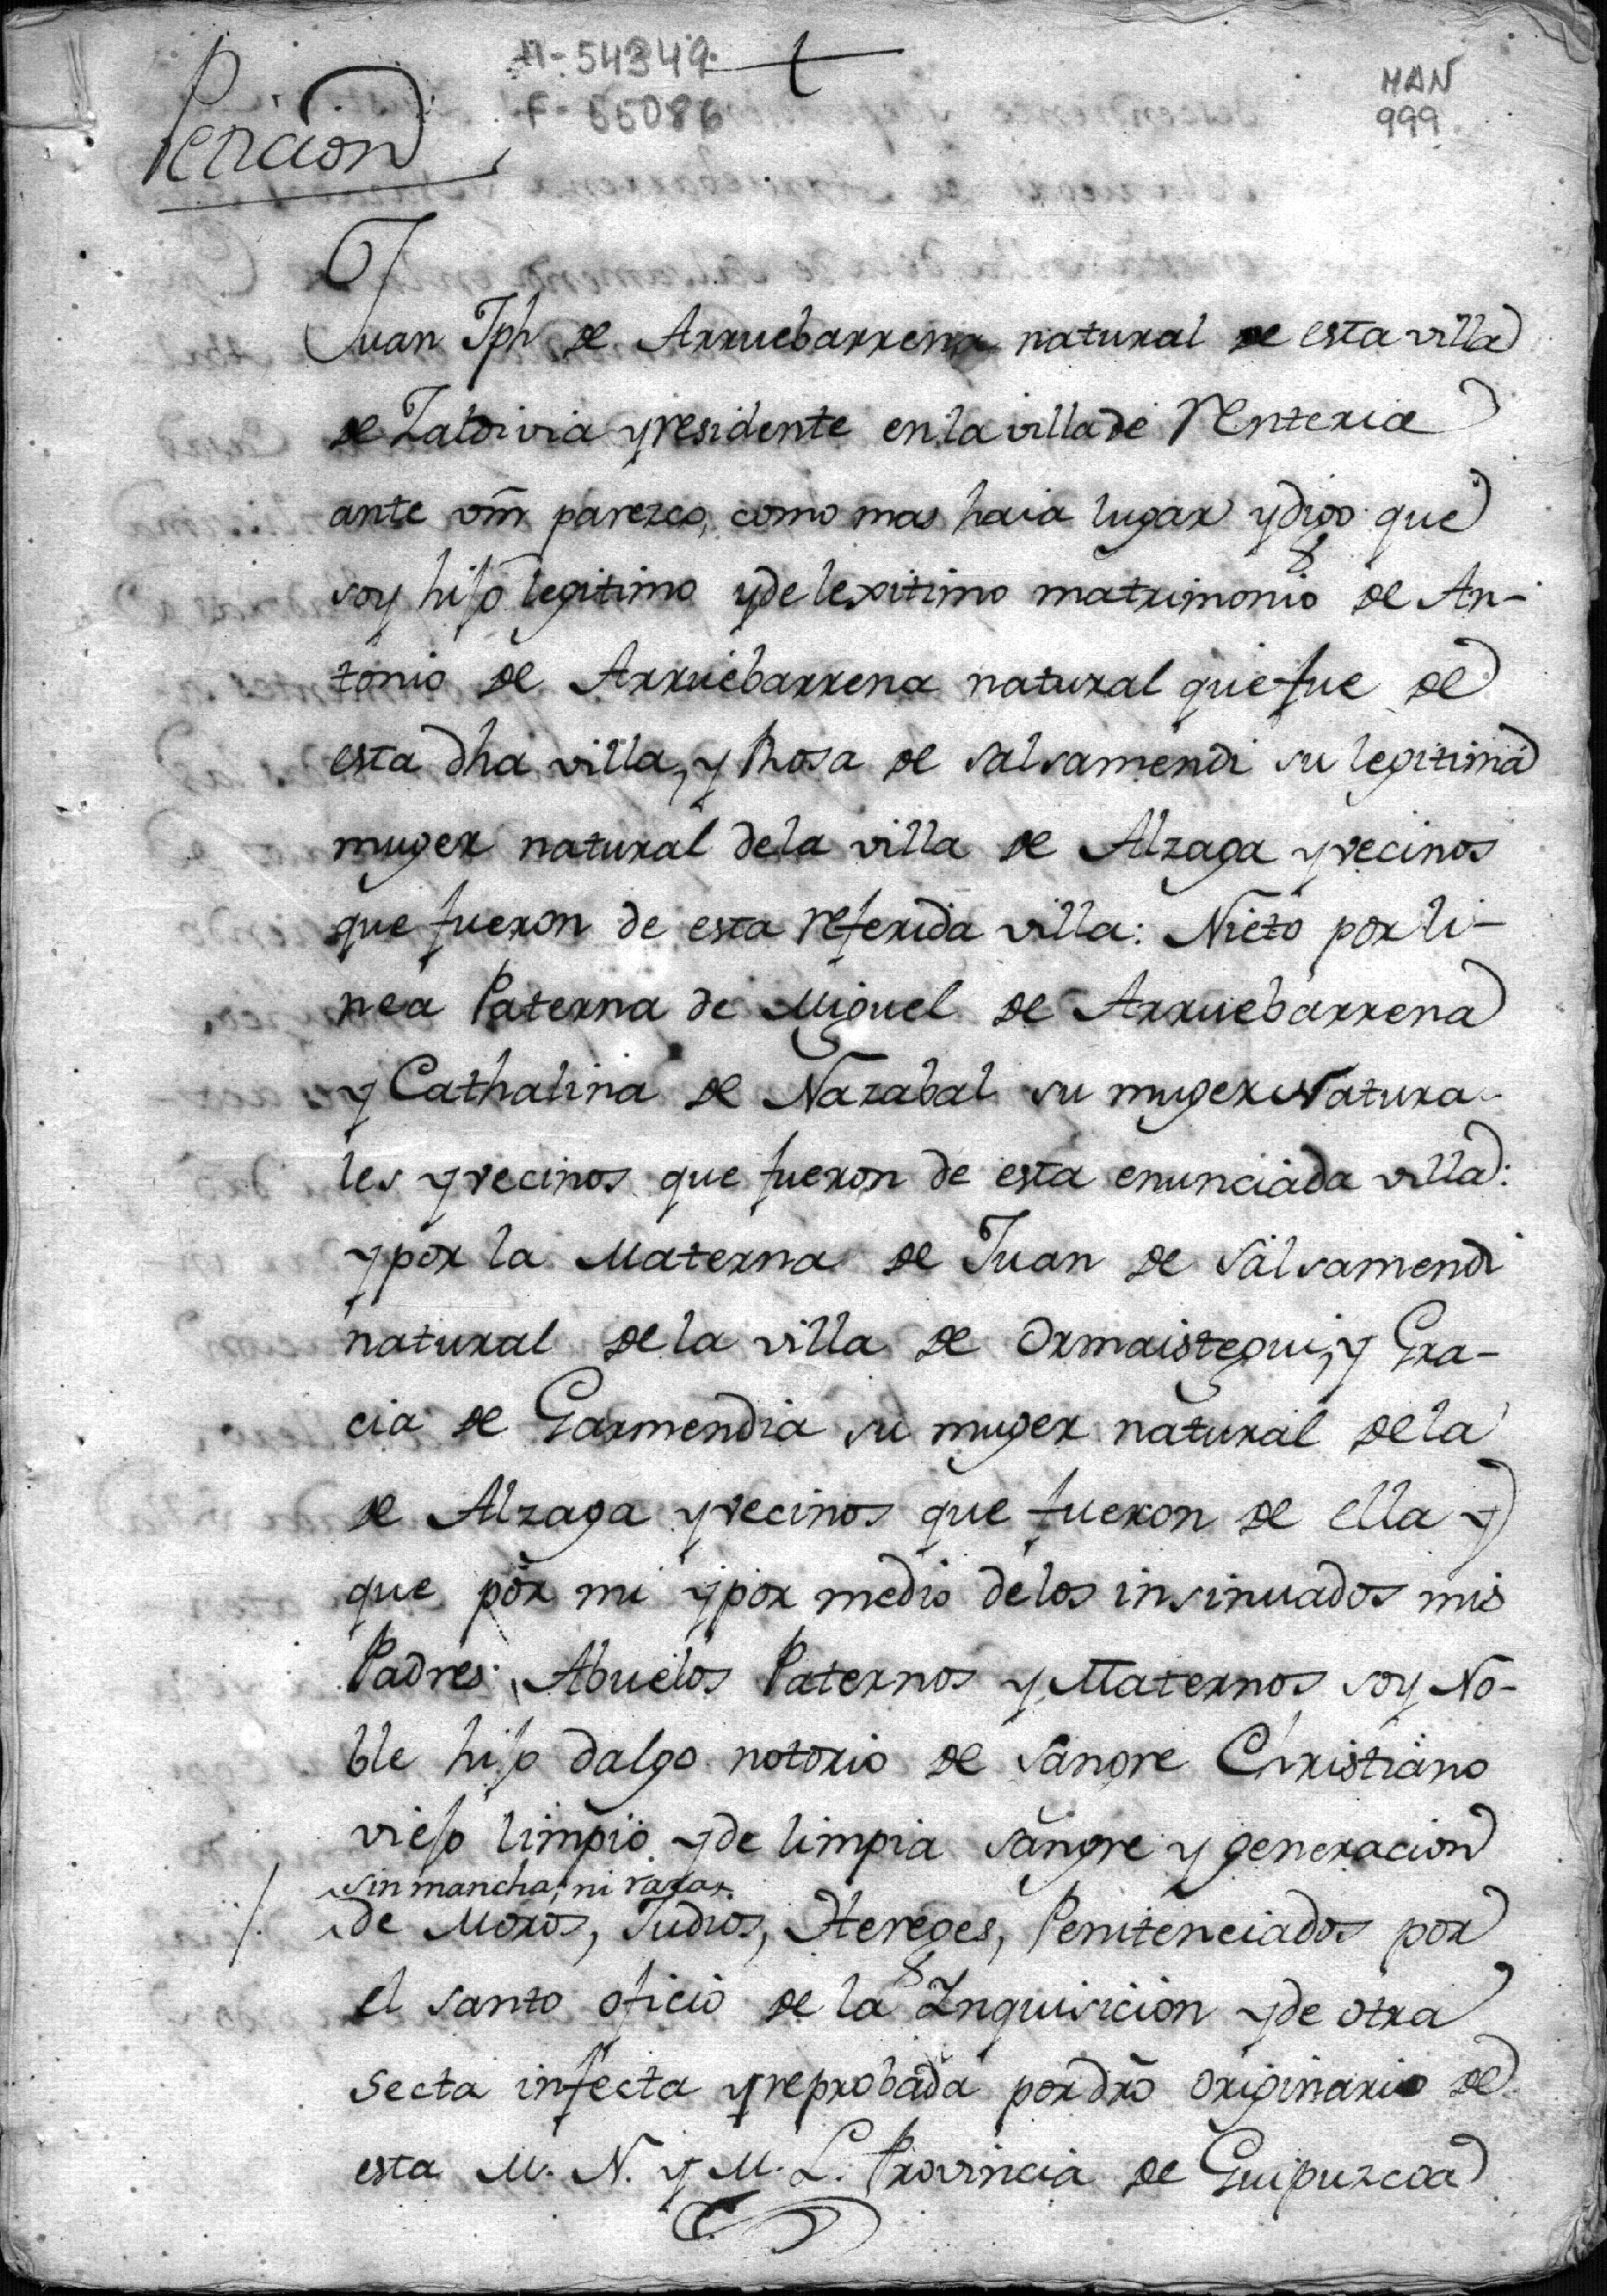 n-54349.
F-55086
MAN
999
Peticion
Juan Jph de Arruebarrena natural de esta villa
de Zaldivia y residente en la villa de Renteria
ante vm̃ parezco, como mas haia lugar y digo que
soy hijo legitimo y de lexitimo matrimonio de An-
tonio de Arruebarrena natural que fue de
esta dha villa, y Rosa de Salsamendi su legitima
muger natural de la villa de Alzaga y vecinos
que fueron de esta referida villa: Nieto por li-
nea Paterna de Miguel de Arruebarrena
y Cathalina de Nazabal su muger Natura-
les y vecinos que fueron de esta enunciada villa:
y por la Materna de Juan de Salsamendi
natural de la villa de Ormaistegui, y Gra-
cia de Garmendia su muger natural de la
de Alzaga y vecinos que fueron de ella y
que por mi y por medio de los insinuados mis
Padres, Abuelos Paternos y Maternos soy No-
ble hijo dalgo notorio de sangre Christiano
viejo limpio y de limpia sangre y generacion
sin mancha, ni raza
de Moros, Judios, Hereges, Penitenciados por
el santo oficio de la Inquisicion y de otra
secta infecta y reprobada por dr̃o originario de
esta M. N. y M. L. Provincia de Guipuzcoa